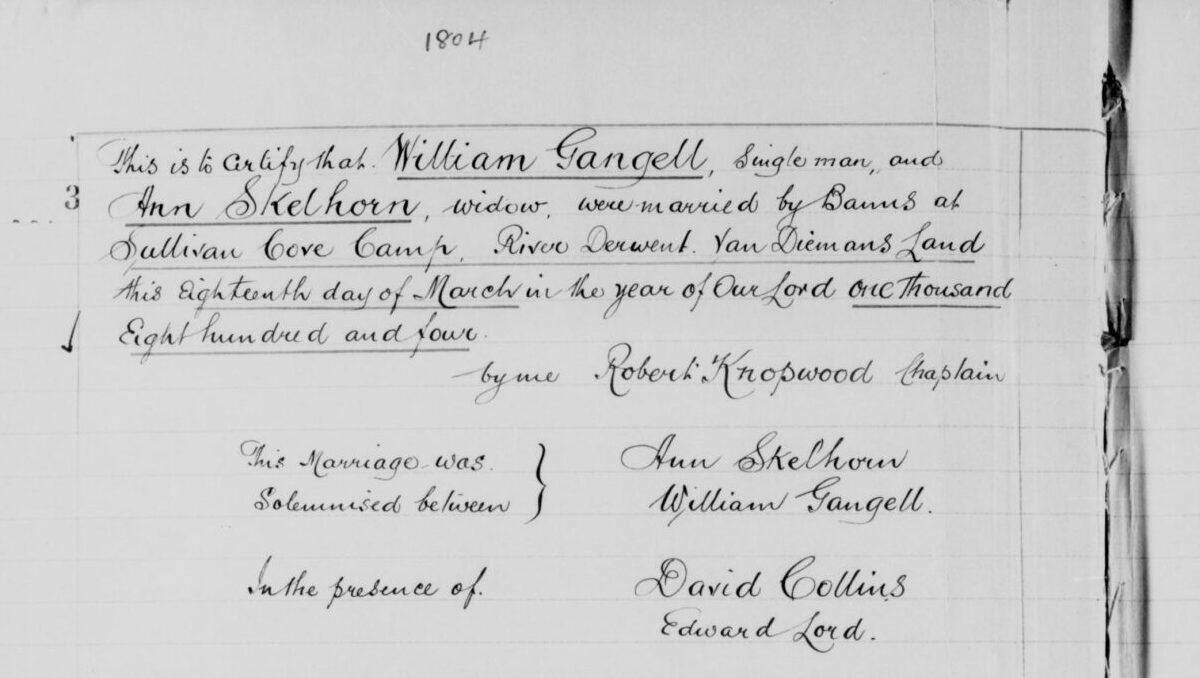 1804
This is to Certify that William Gangell, Single man, and
3
Ann Skelhorn, widow, were married by Banns at
Sullivan Cove Camp, River Derwent. Van Diemans Land
this Eighteenth day of March in the year of Our Lord one Thousand
Eight hundred and four.
by me Robert Knopwood Chaplain
This Marriage was } Ann Skelhorn
Solemnised between William Gangell.
In the presence of. David Collins
Edward Lord.